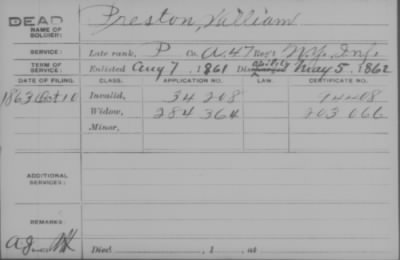 DEAD Preston, William
NAME OF SOLDIER:
SERVICE: Late rank, P Co. A. 47 Reg't N.Y. Inf.
TERM OF SERVICE: Enlisted Aug 7, 1861 Disability May 5, 1862
DATE OF FILING. CLASS. APPLICATION NO. LAW. CERTIFICATE NO.
1863 Oct 10 Invalid, 34 208 14408
Widow, 284 364 203 066
Minor,
ADDITIONAL SERVICES:
REMARKS:
Died , 1 , at